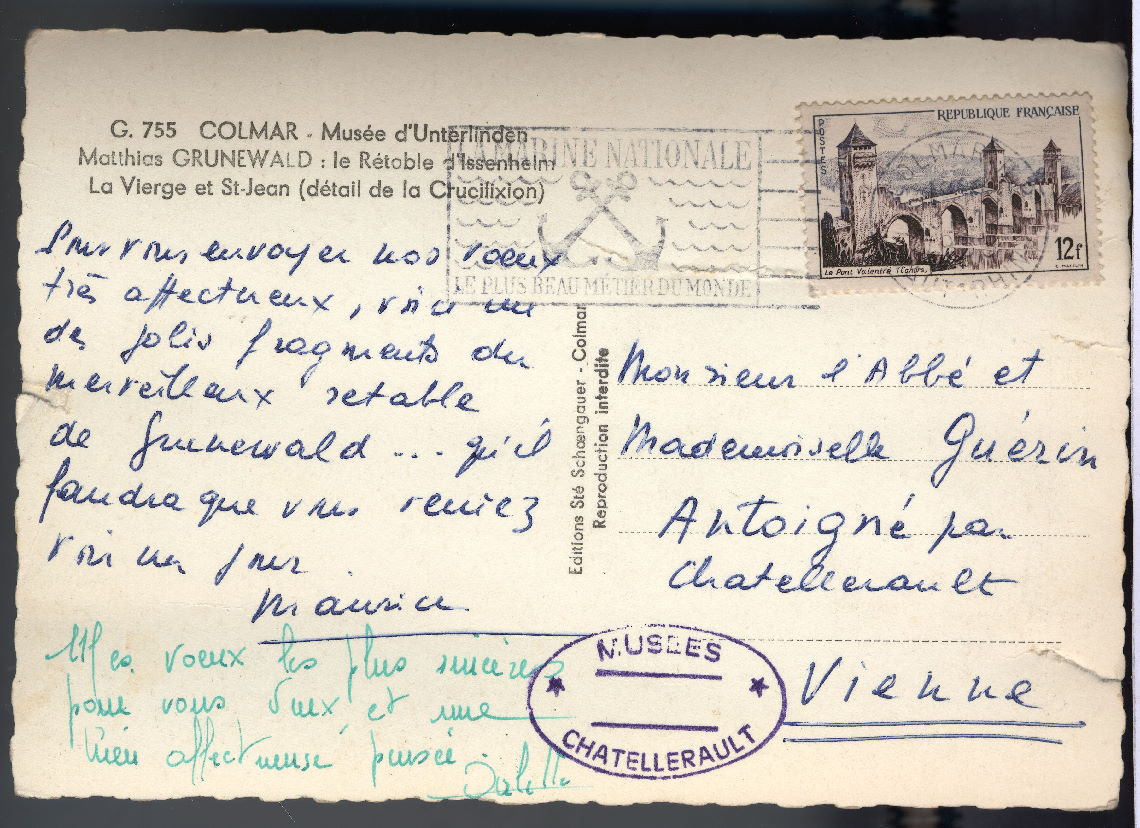 G. 755 COLMAR - Musée d'Unterlinden
Matthias GRUNEWALD : le Rétable d'Issenheim
La Vierge et St-Jean (détail de la Crucifixion)
Pour vous envoyer nos voeux
très affectueux, voici un
des jolis fragments du
merveilleux retable
de Grunewald ... qu'il
faudra que vous veniez
voir un jour.
Maurice
Mes voeux les plus sincères
pour vous deux, et une
bien affectueuse pensée.
LA MARINE NATIONALE
LE PLUS BEAU MÉTIER DU MONDE
REPUBLIQUE FRANÇAISE
POSTES
Le Pont Valentré (Cahors)
12f
COLMAR
Editions Sté Schœngauer - Colmar
Reproduction interdite
Monsieur l'Abbé et
Mademoiselle Guérin
Antoigné par
Chatellerault
Vienne
MUSEES
CHATELLERAULT